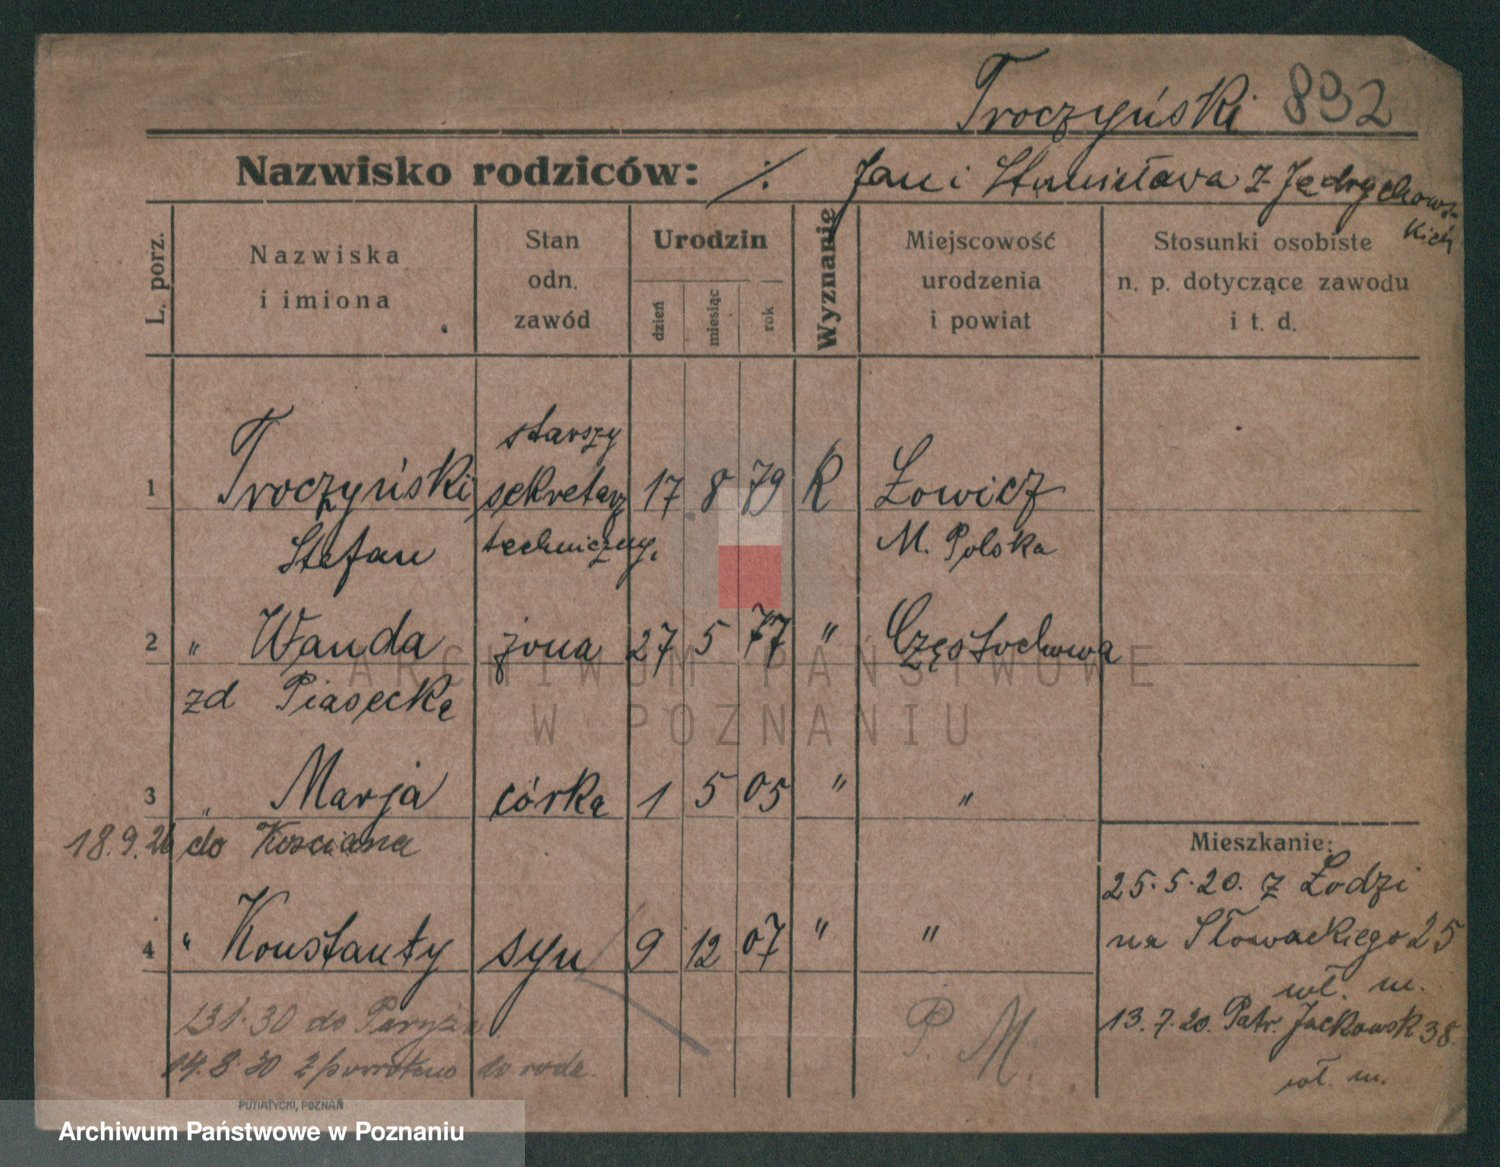 Troczyński 832
Nazwisko rodziców: ./. Jan i Stanisława z Jędrychows-
kich
L. porz.
Nazwiska
i imiona
Stan
odn.
zawód
Urodzin
dzień
miesiąc
rok
Wyznanie
Miejscowość
urodzenia
i powiat
Stosunki osobiste
n. p. dotyczące zawodu
i t. d.
starszy
1 Troczyński sekretarz 17 8 79 R Łowicz
Stefan techniczny. M. Polska
2 " Wanda żona 27 5 77 " Częstochowa
zd Piasecka
3 " Marja córka 1 5 05 " "
18.9.26 do Kościana
4 " Konstanty syn 9 12 07 " "
31.30 do Paryża
14.8.30 z powrotem do rodz.
P. M.
Mieszkanie:
25.5.20. z Łodzi
na Słowackiego 25
wł. m.
13.7.20. Patr. Jackowsk 38.
wł. m.
PUTIATYCKI, POZNAŃ
ARCHIWUM PAŃSTWOWE
W POZNANIU
Archiwum Państwowe w Poznaniu